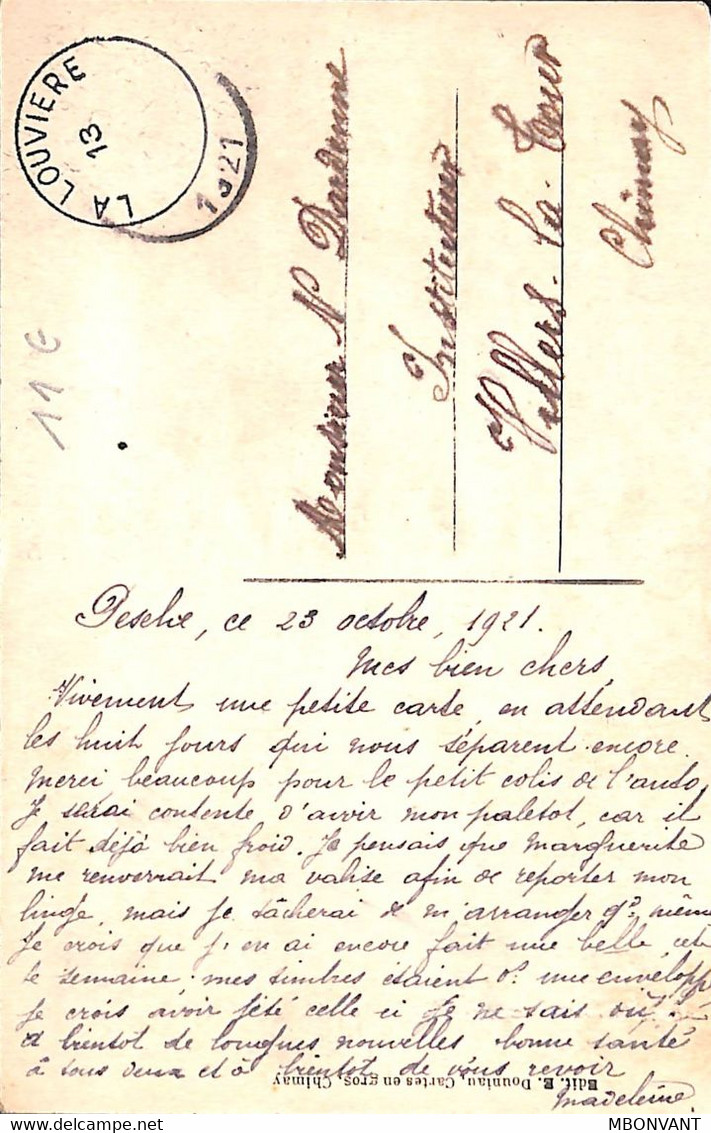 LA LOUVIERE
13
1921
11 €
Monsieur N Dardenne
Instituteur
Villers-la-Tour
Chimay
Pesche, ce 23 octobre, 1921.
Mes bien chers,
Vivement une petite carte, en attendant
les huit jours qui nous séparent encore.
Merci beaucoup pour le petit colis de l'auto,
Je serai contente d'avoir mon paletot, car il
fait déjà bien froid. Je pensais que Marguerite
me renverrait ma valise afin de reporter mon
linge, mais je tâcherai de m'arranger qd même
Je crois que j'en ai encore fait une belle, cet
te semaine; mes timbres étaient ds une enveloppe
je crois avoir jeté celle ci je ne sais où.
à bientot de longues nouvelles bonne santé
à tous deux et à bientot de vous revoir
Madeleine.
Edit. E. Douniau, Cartes en gros, Chimay
MBONVANT